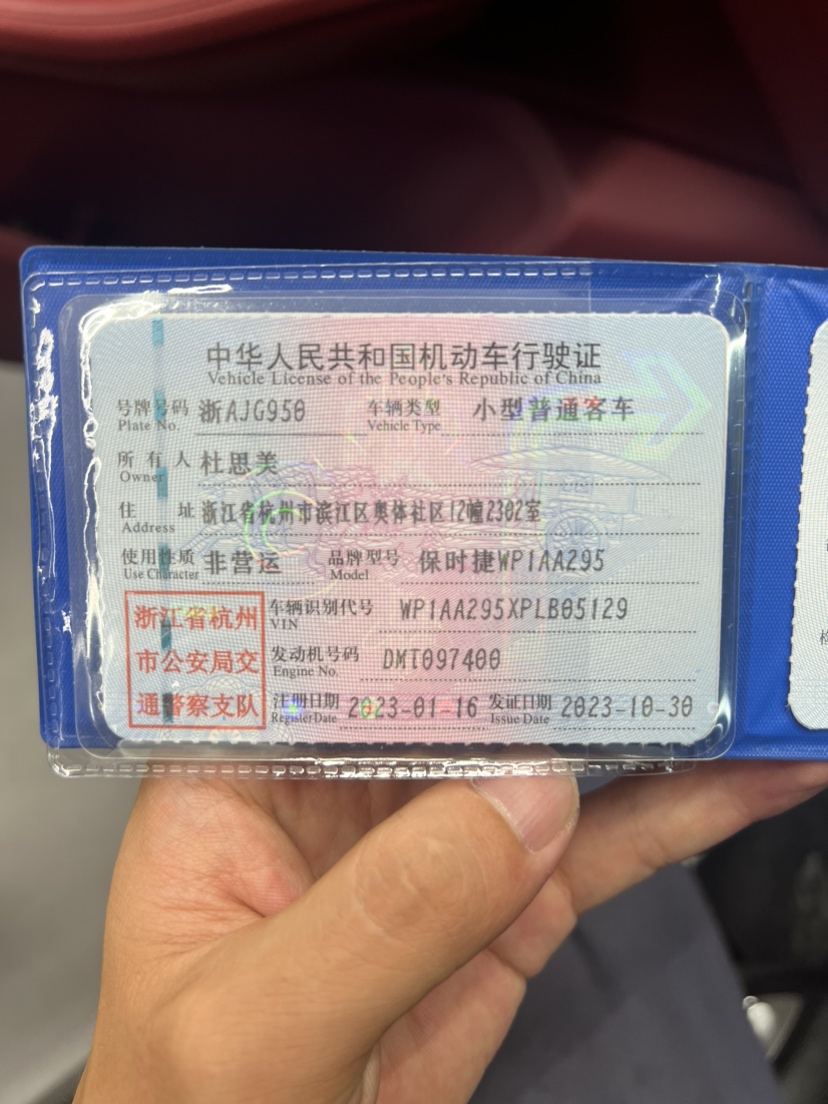 中华人民共和国机动车行驶证
Vehicle License of the People's Republic of China
号牌号码 浙AJG950 车辆类型 小型普通客车
Plate No. Vehicle Type
所有人 杜思美
Owner
住址 浙江省杭州市滨江区奥体社区12幢2302室
Address
使用性质 非营运 品牌型号 保时捷WP1AA295
Use Character Model
浙江省杭州
市公安局交
通警察支队
车辆识别代号 WP1AA295XPLB05129
VIN
发动机号码 DMT097400
Engine No.
注册日期 2023-01-16 发证日期 2023-10-30
Register Date Issue Date